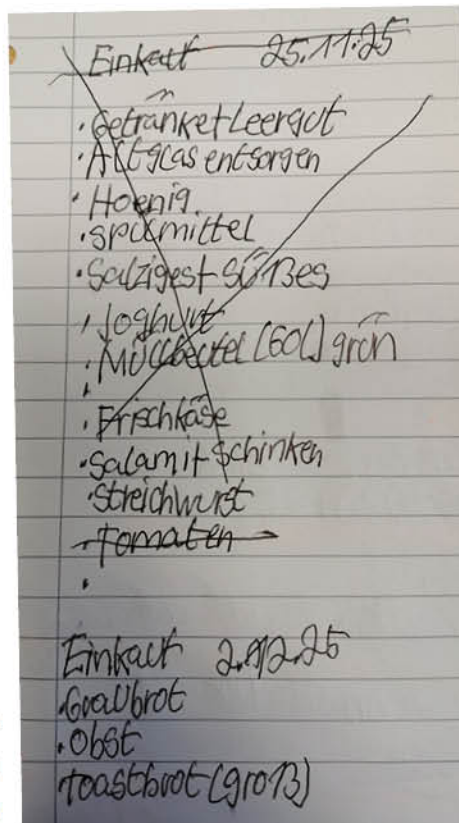 Einkauf 25.11.25
· Getränke+Leergut
· Altglas entsorgen
· Hoenig
· Spülmittel
· Salziges+Süßes
· Joghurt
· Müllbeutel (60L) grün
·
· Frischkäse
· Salami+Schinken
· Streichwurst
· Tomaten
·
Einkauf 2.12.25
· Graubrot
· Obst
Toastbrot (groß)